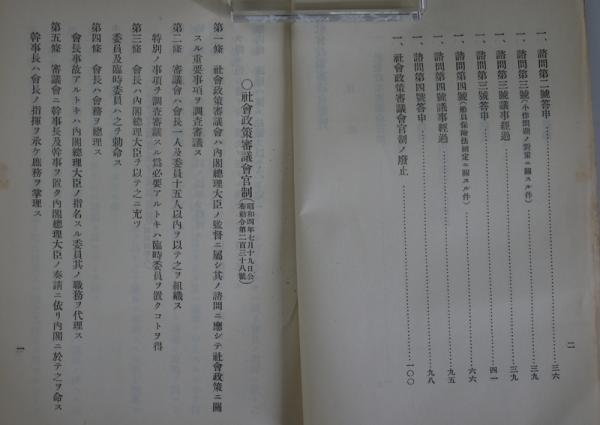 一、諮問第二號答申……三六
一、諮問第三號(小作問題ノ對策ニ關スル件)……三九
一、諮問第三號議事經過……三九
一、諮問第三號答申……四一
一、諮問第四號(勞働保險法制定ニ關スル件)……六六
一、諮問第四號議事經過……九五
一、諮問第四號答申……九八
一、社會政策審議會官制ノ廢止……一〇〇
二
〇社會政策審議會官制(昭和四年七月十九日公布勅令第二百三十八號)
第一條 社會政策審議會ハ內閣總理大臣ノ監督ニ屬シ其ノ諮問ニ應シテ社會政策ニ關
スル重要事項ヲ調查審議ス
第二條 審議會ハ會長一人及委員十五人以內ヲ以テ之ヲ組織ス
特別ノ事項ヲ調查審議スル爲必要アルトキハ臨時委員ヲ置クコトヲ得
第三條 會長ハ內閣總理大臣ヲ以テ之ニ充ツ
委員及臨時委員ハ之ヲ勅命ス
第四條 會長ハ會務ヲ總理ス
會長事故アルトキハ內閣總理大臣ノ指名スル委員其ノ職務ヲ代理ス
第五條 審議會ニ幹事長及幹事ヲ置ク內閣總理大臣ノ奏請ニ依リ內閣ニ於テ之ヲ命ス
幹事長ハ會長ノ指揮ヲ承ケ庶務ヲ掌理ス
一